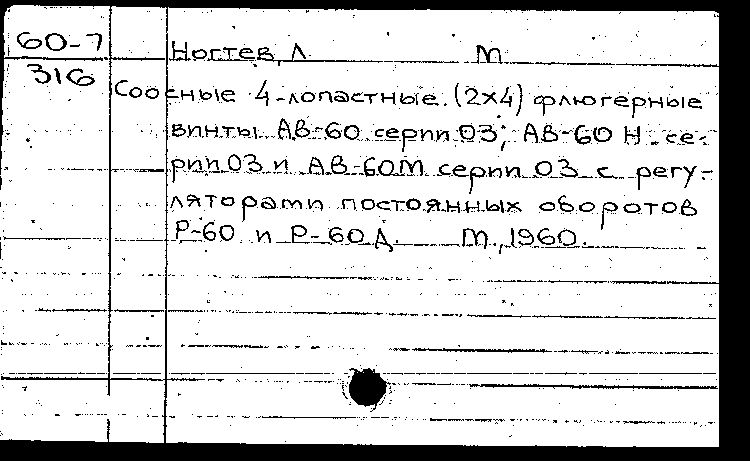 60-7
316
Ногтев, Л. М
Соосные 4-лопастные (2х4) флюгерные
винты АВ-60 серии 03, АВ-60 Н се-
рии 03 и АВ-60М серии 03 с регу-
ляторами постоянных оборотов
Р-60 и Р-60Д. М., 1960.